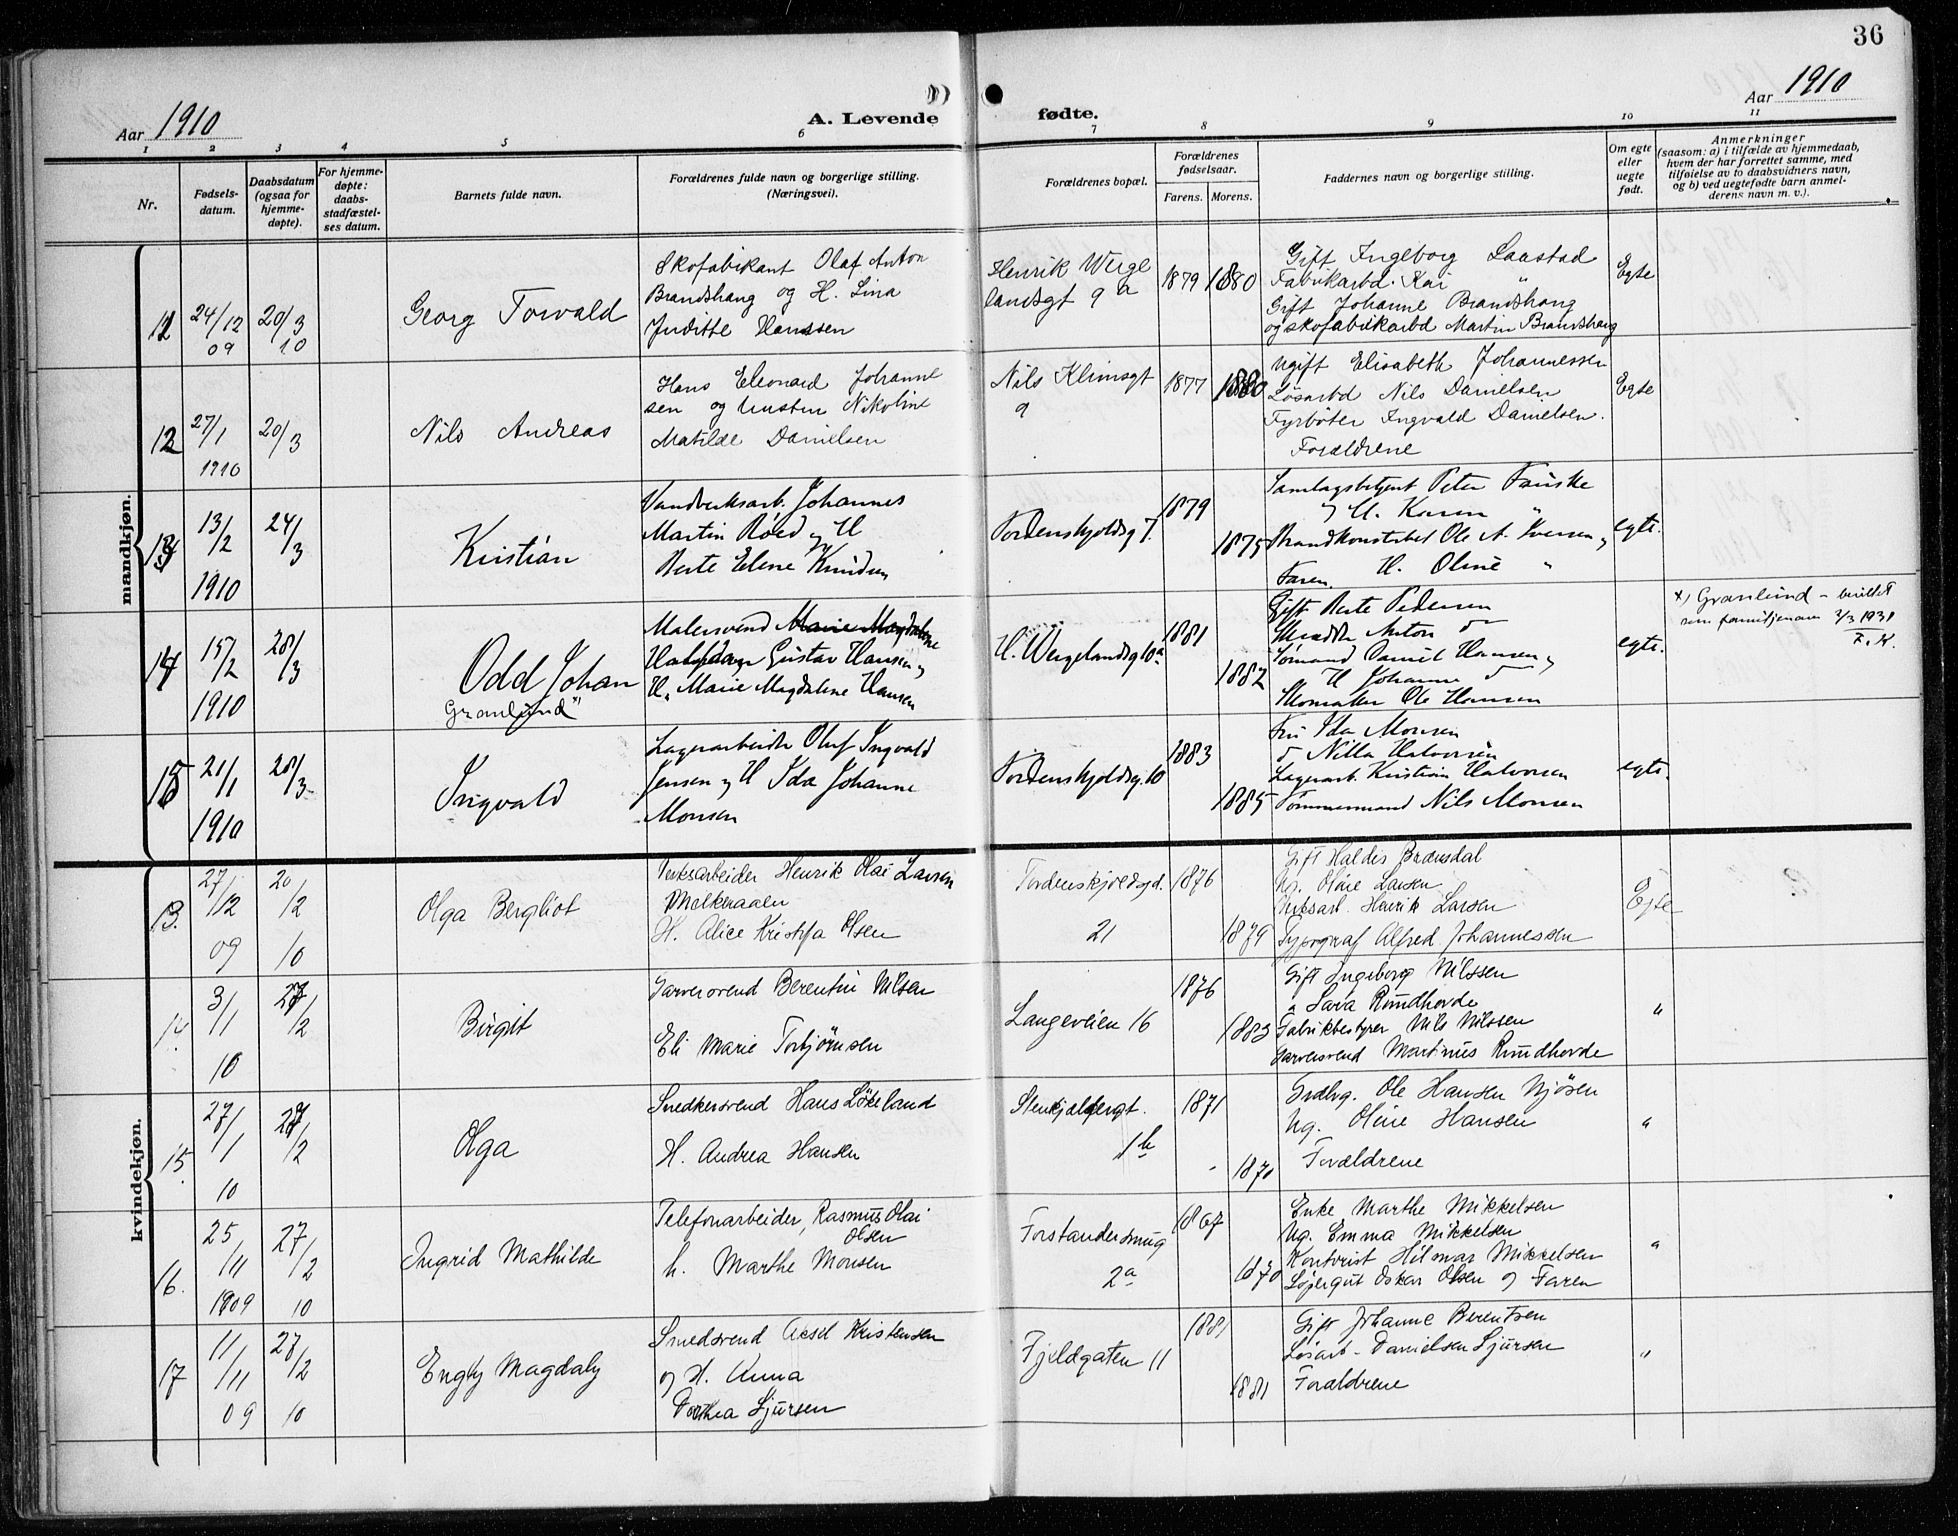 36
Aar 1910
A. Levende
fødte.
Aar 1910
1 2 3 4 5 6 7 8 9 10 11
Nr.
Fødsels-
datum.
Daabsdatum
(ogsaa for
hjemme-
døpte).
For hjemme-
døpte:
daabs-
stadfæstel-
ses datum.
Barnets fulde navn.
Forældrenes fulde navn og borgerlige stilling.
(Næringsvei).
Forældrenes bopæl.
Forældrenes
fødselsaar.
Farens. Morens.
Faddernes navn og borgerlige stilling.
Om egte
eller
uegte
født.
Anmerkninger
(saasom: a) i tilfælde av hjemmedaab,
hvem der har forrettet samme, med
tilføielse av to daabsvidners navn,
og b) ved uegtefødte barn anmel-
derens navn m. v.).
mandkjøn.
11
24/12
09
20/3
10
Georg Torvald
Skofabikant Olaf Anton
Brandshaug og H. Lina
Juditte Hanssen
Henrik Werge
landsgt 9a
1879 1880
Gift Ingeborg Laastad
Fabrikarbd. Kai "
Gift Johanne Brandshaug
og skofabrikarbd Martin Brandshaug
Egte
12
27/1
1910
20/3
Nils Andreas
Hans Eleonard Johanne
sen og hustru Nikoline
Matilde Danielsen
Nils Klimsgt
9
1877 1880
Ugift Elisabeth Johannessen
Løsarbd Nils Danielsen
Fyrbøter Ingvald Danielsen.
Forældrene
Egte
13
13/2
1910
24/3
Kristian
Vandverksarb. Johannes
Martin Røed og H
Berte Elene Knudsen
Tordenskjoldsg 7.
1879
1875
Samlagsbetjent Peter Fauske
og H. Karen "
Brandkonstabel Ole A. Iversen og
Faren. H. Oline "
egte.
14
15/2
1910
28/3
Odd Johan
Granlund x)
Malersvend Marie Magdalene
Gustav Hansen og
H. Marie Magdalene Hansen
H. Wergelandsg 10a
1881
1882
Gift Berte Pedersen
Anton do
Sømand Daniel Hansen og
H Johanne do
Ole Hansen
egte.
x) Granlund – bevilget
som familjenavn 2/3 1931
F. K.
15
21/1
1910
28/3
Ingvald
Lagerarbeider Oluf Ingvald
Jensen og H Ida Johanne
Monsen
Tordenskjoldsg. 10
1883
1885
Fru Ida Monsen
" Nilla Halvorsen
Lagerarb. Kristian Halvorsen
Tømmermand Nils Monsen
egte.
kvindekjøn.
13.
27/12
09
20/2
10
Olga Bergliot
Verksarbeider Henrik Olai Larsen
Melkeraaen
H. Alice Kristofa Olsen
Tordenskjoldsgd.
21
1876
1879
Gift Haldis Brænsdal
Ug. Oline Larsen
Verksarb. Henrik Larsen
Typograf Alfred Johannessen
Egte
14.
3/1
10
27/2
Birgit
Garversvend Berentin Nilsen
Eli Marie Torbjørnsen
Langeveien 16
1876
1883
Gift Ingeborg Nilssen
" Sara Rundhovde
Fabrikbestyrer Nils Nilssen
Garversvend Martinus Rundhovde
"
15.
27/1
10
27/2
Olga
Snedkersvend Hans Løkeland
H. Andrea Hansen
Stenkjeldergt.
1b
1871
1870
Grdbrg. Ole Hansen Njøsen
Ug. Oline Hansen
Forældrene
"
16.
25/11
1909
27/2
10
Ingrid Mathilde
Telefonarbeider, Rasmus Olai
Olsen
h. Marthe Monsen
Forstandersmug
2a
1867
1870
Enke Marthe Mikkelsen
Ug. Emma Mikkelsen
Kontorist Hilmar Mikkelsen
Løpergut Oskar Olsen og Faren
"
17
11/11
09
27/2
10
Engly Magdaly
Smedsvend Aksel Kristensen
og H. Anna
Dorthea Sjursen
Fjeldgaten 11
1881
1881
Gift Johanne Berentsen
Løsarb – Danielsen Sjursen
Forældrene
"